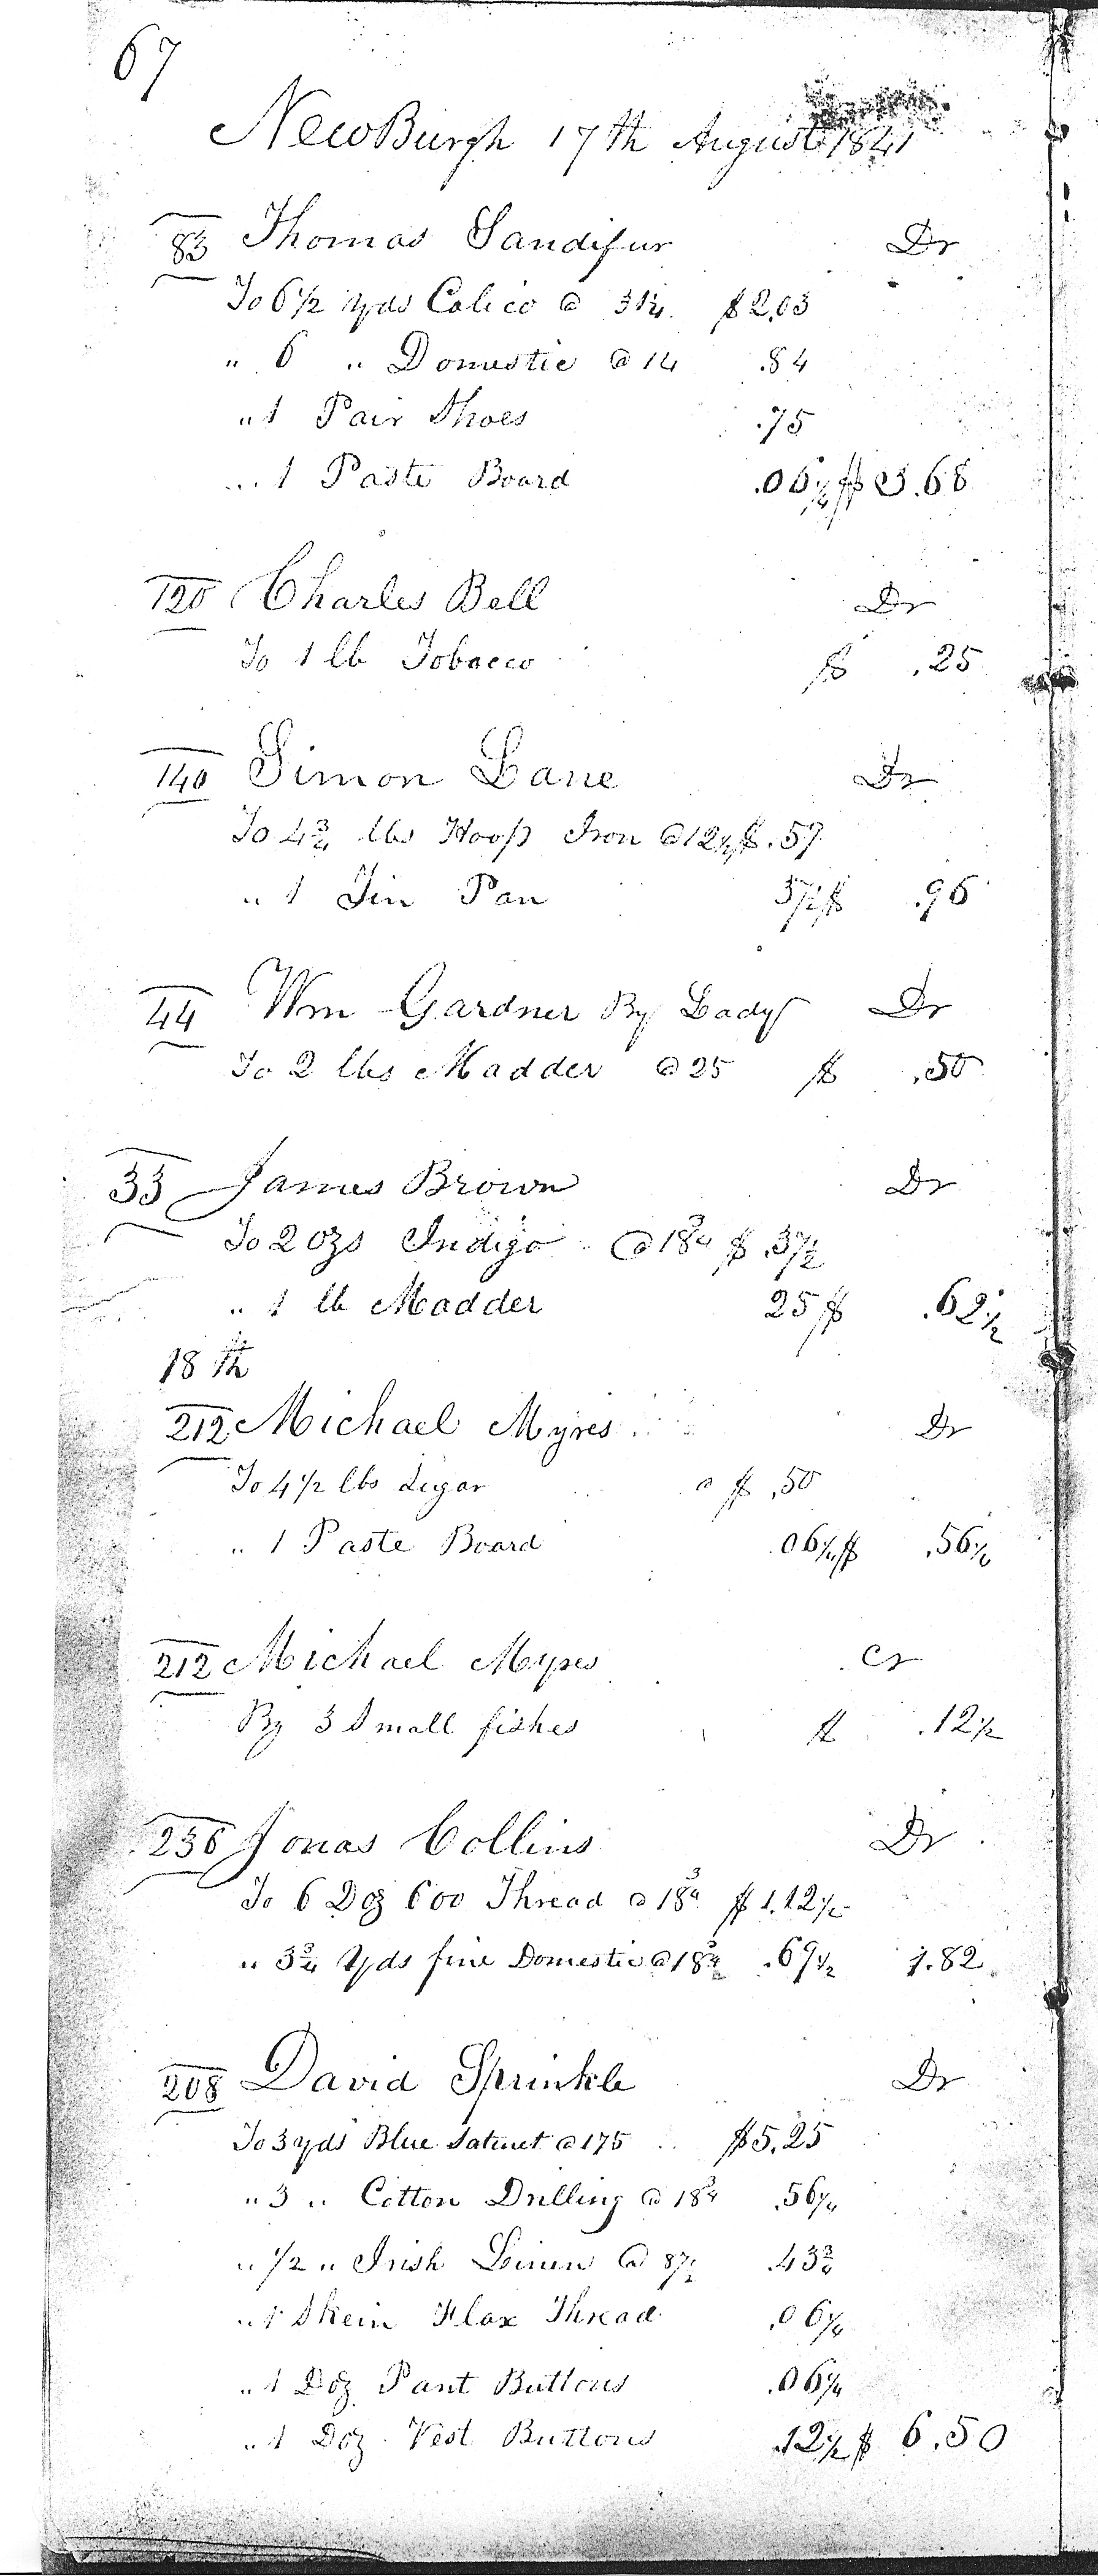 67
NewBurgh 17th August 1841
83 Thomas Sandifur Dr
To 6 1/2 Yds Calico @ 31 1/4 $2.03
" 6 " Domestic @ 14 .84
" 1 Pair Shoes .75
" 1 Paste Board .06 1/4 $ 3.68
120 Charles Bell Dr
To 1 lb Tobacco $ .25
140 Simon Lane Dr
To 4 3/4 lbs Hoop Iron @ 12 1/2 $ .59
" 1 Tin Pan 37 1/2 $ .96
44 Wm Gardner By Lady Dr
To 2 lbs Madder @ 25 $ .50
33 James Brown Dr
To 2 ozs Indigo @ 18 3/4 $ .37 1/2
" 1 lb Madder 25 $ .62 1/2
18th
212 Michael Myres Dr
To 4 1/2 lbs Sugar @ $ .50
" 1 Paste Board .06 1/4 $ .56 1/4
212 Michael Myres Cr
By 3 Small fishes $ .12 1/2
236 Jonas Collins Dr
To 6 Doz 600 Thread @ 18 3/4 $ 1.12 1/2
" 3 3/4 Yds fine Domestic @ 18 3/4 .69 1/2 1.82
208 David Sprinkle Dr
To 3 yds Blue Satinet @ 175 $5.25
" 3 " Cotton Drilling @ 18 3/4 .56 1/4
" 1/2 " Irish Leinen @ 87 1/2 .43 3/4
" 1 Skein Flax Thread .06 1/4
" 1 Doz Pant Buttons .06 1/4
" 1 Doz Vest Buttons .12 1/2 $ 6.50